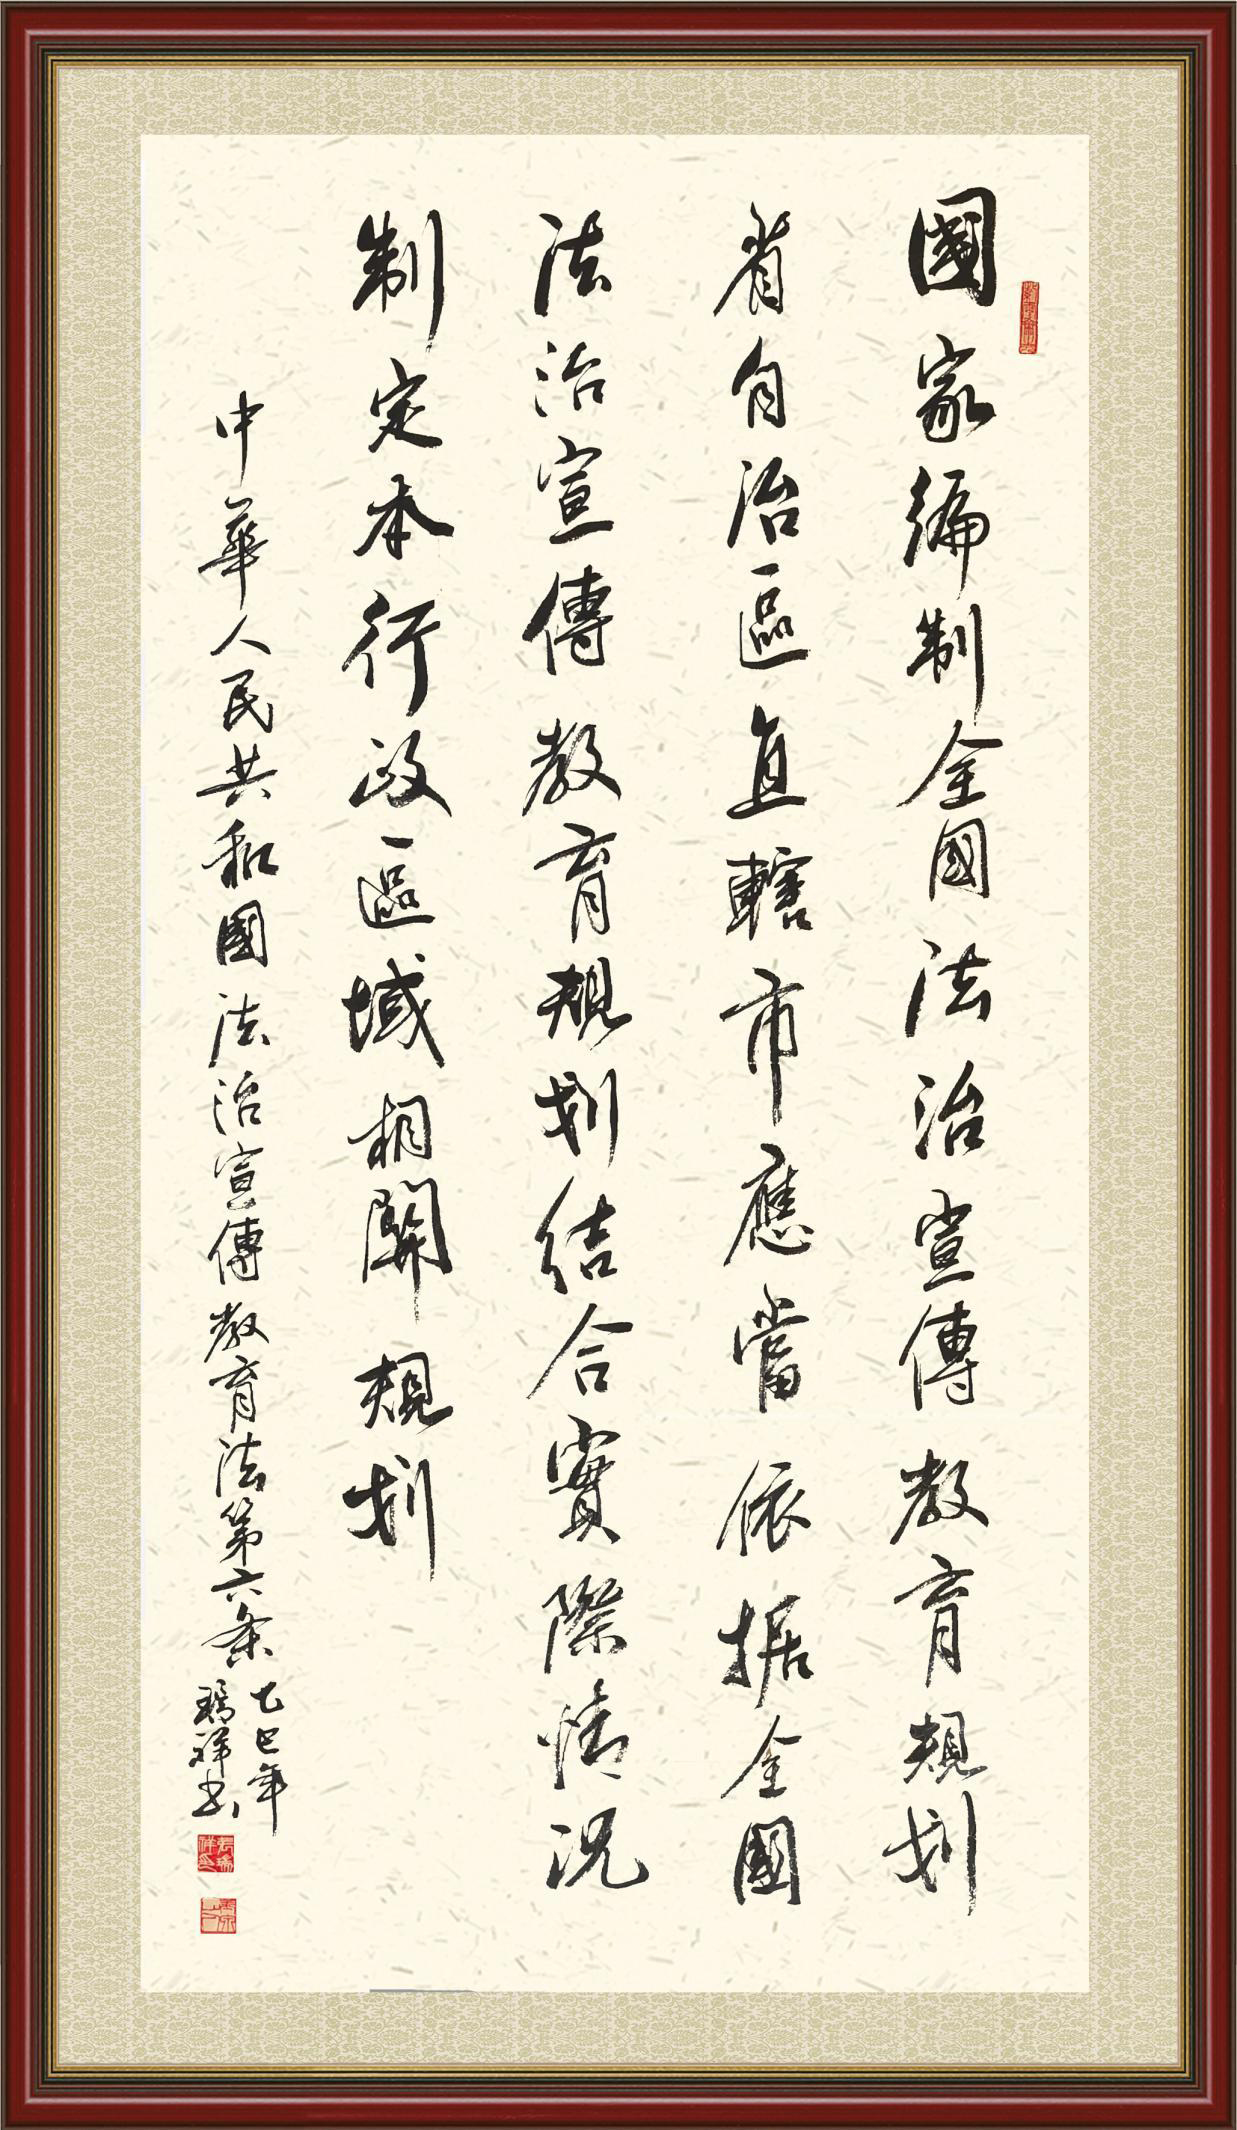 國家編制全國法治宣傳教育規划
省自治區直轄市應當依据全國
法治宣傳教育規划結合實際情況
制定本行政區域相關規划
中華人民共和國法治宣傳教育法第六条
乙巳年
瑞祥书